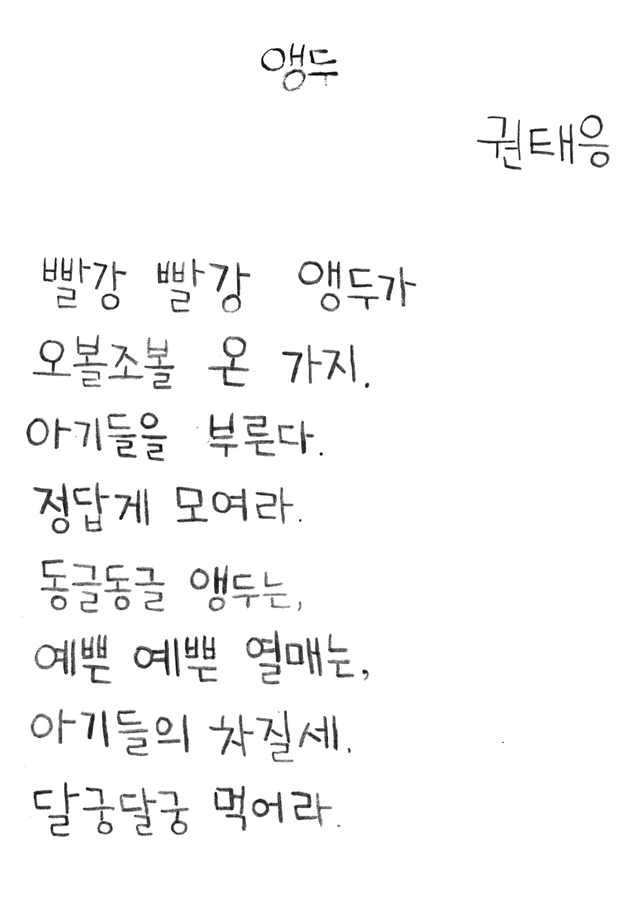 앵두
권태응
빨강 빨강 앵두가
오볼조볼 온 가지.
아기들을 부른다.
정답게 모여라.
동글동글 앵두는,
예쁜 예쁜 열매는,
아기들의 차질세.
달궁달궁 먹어라.